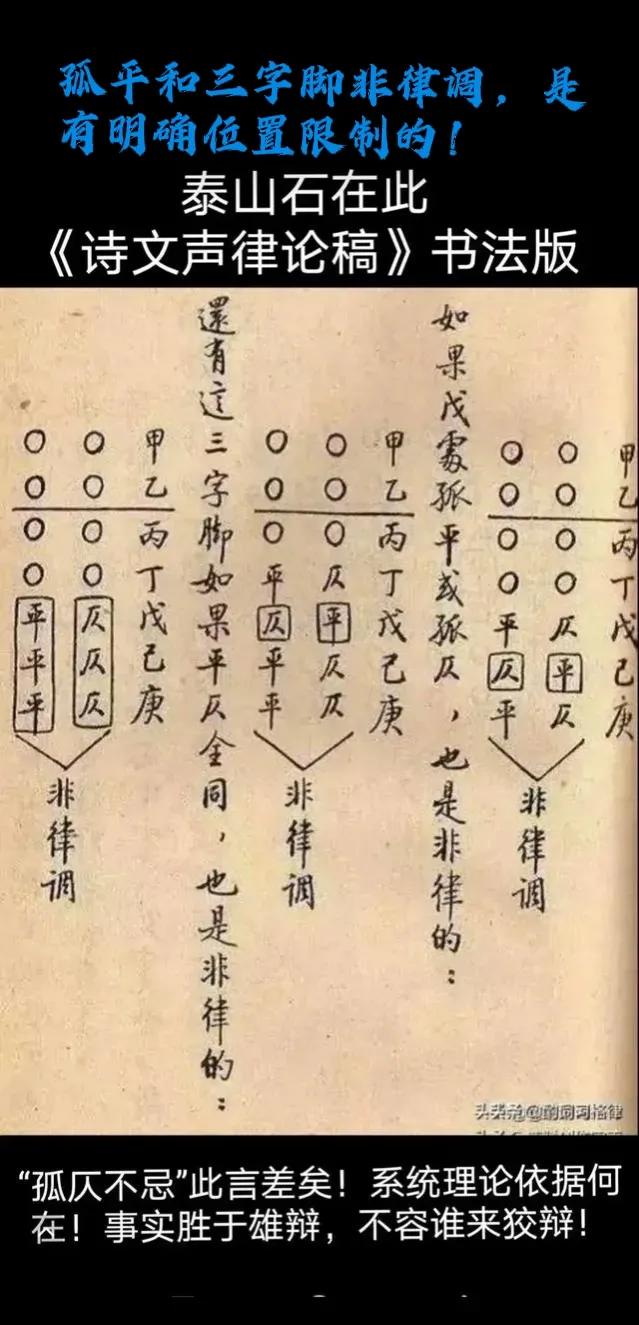 孤平和三字脚非律调，是
有明确位置限制的！
泰山石在此
《诗文声律论稿》书法版
甲乙丙丁戊己庚
○○○○仄平仄
○○○○平仄平
非律调
如果戊處孤平或孤仄，也是非律的：
甲乙丙丁戊己庚
○○○仄平仄仄
○○○平仄平平
非律调
還有这三字脚如果平仄全同，也是非律的：
甲乙丙丁戊己庚
○○○○仄仄仄
○○○○平平平
非律调
“孤仄不忌”此言差矣！系统理论依据何
在！事实胜于雄辩，不容谁来狡辩！